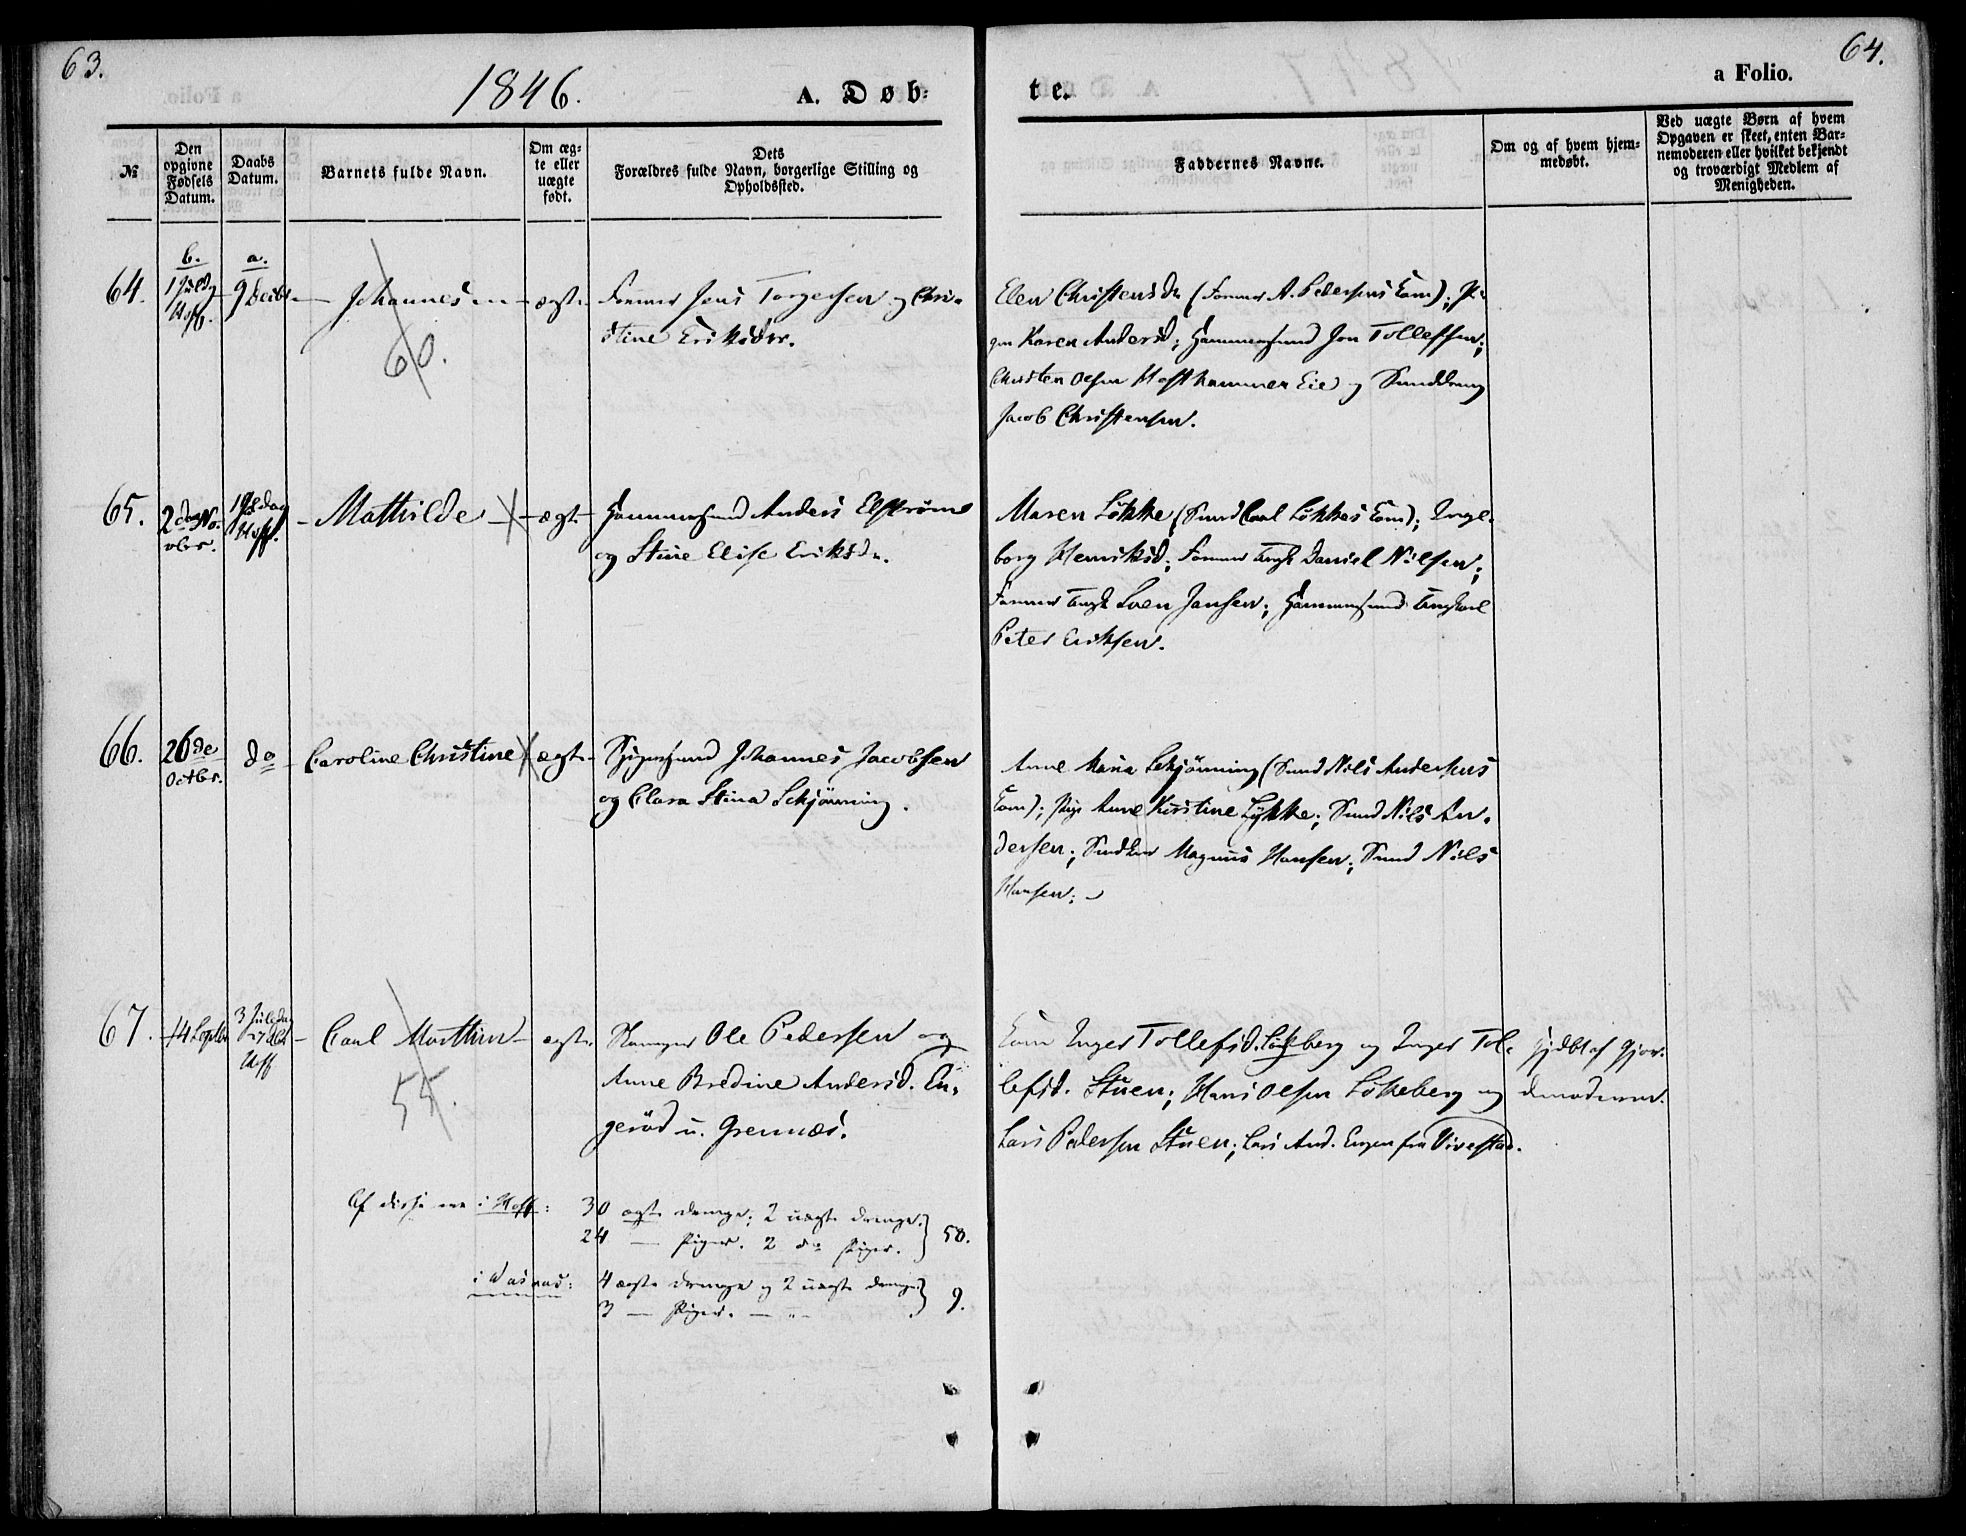 63.
1846.
A. Døb-
te.
a Folio.
64.
№
Den opgivne Fødsels Datum.
Daabs Datum.
Barnets fulde Navn.
Om ægte eller uægte født.
Dets Forældres fulde Navn, borgerlige Stilling og Opholdssted.
Faddernes Navne.
Om og af hvem hjemmedøbt.
Ved uægte Børn af hvem Opgaven er skeet, enten Barnemoderen eller hvilket bekjendt og troværdigt Medlem af Menigheden.
b.
a.
64.
Johannes
60.
ægte
Jens Torgersen og Chri-
stine Eriksdtr.
Elen Christensdr (Former A. Pedersens Kone); Pi-
gen Karen Andersd; Hammersmed Jon Tolleffsen;
Christen Olsen Hoffhammer Eie og
Jacob Christensen.
65.
2den No-
vbr.
Mathilde
ægte
Hammersmed Anders Elstrøms
og Stine Elise Eriksdr.
Maren Løkke (Smed Carl Løkkes Kone); Inge-
borg Henriksd; Former Daniel Nilsen;
Former Jansen; Hammersmed
Peter Eriksen.
66.
26de
Octbr.
do
Caroline Christine
ægte
Johannes Jacobsen
og Clara Stina Schjønning.
Anne Maria Schjønning (Smed Nils Andersens
Kone); Pige Anne Kirstine Lykke; Smed Nils An-
dersen; Magnus Hansen; Smed Nils
Hansen;
67.
14 Septbr
3 Juledag
Hoff
Carl Marthin
55.
ægte
Ole Pedersen og
Anne Bredine Andersd. En-
gerød u. Grennæs.
Kone Inger Tollefsd. Løkeberg og Inger Tol-
lefsd. Stuen; Hans Olsen Løkeberg og
Lars Pedersen Stuen; Lars And. Engen fra Vivestad.
hjdbt af Gjor-
demoderen.
Af disse ere i Hoff: 30 ægte drenge; 2 uægte drenge.
24 — Piger. 2 do Piger. } 58.
i Vasaas: 4 ægte drenge og 2 uægte drenge
3 — Piger. — } 9.